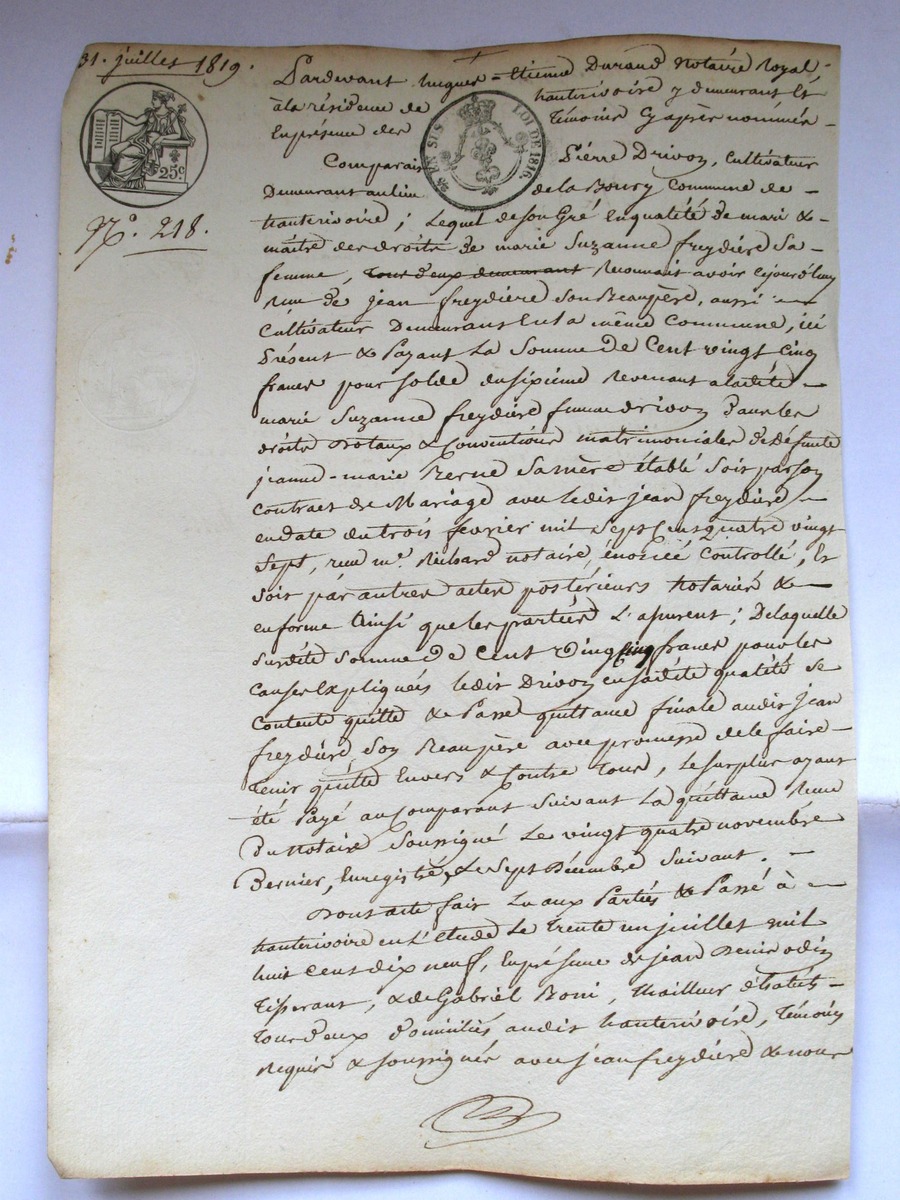 31. juillet 1819.
Pardevant hugues-Etienne Durand Notaire Royal
à la résidence de hauterivoire y demeurant Et
En présence des Témoins Cy après nommés
25c
¼ EN SUS LOI DE 1816.
Comparait Pierre Drivon, Cultivateur
Demeurant au lieu de la Boury Commune de
N.° 218.
hauterivoire; Lequel de son Gré En qualité de mari &
maître des droits de marie Suzanne freydière Sa
femme, tous deux demeurant Reconnait avoir cejourd'huy
Reçu de jean freydière Son Beaupère, aussi
Cultivateur Demeurant En la même Commune, ici
Présent & Payant La Somme de Cent vingt cinq
francs pour solde du sixième Revenant a ladite
marie Suzanne freydière femme drivon Dans les
droits Dotaux & Conventions matrimoniales de Défunte
jeanne-marie Sa mère établi Soit par son
Contrat de Mariage avec ledit jean freydière
en date du trois février mil Sept Cent quatre vingt
Sept, reçu m.e Richard notaire, énoncé Controllé, Et
Soit par autres actes postérieurs Notariés &
en forme Ainsi que les parties L'assurent; De laquelle
Susdite Somme de Cent vingt cinq francs pour les
Causes Expliquées ledit Drivon en sadite qualité se
Contente quitte & Passe quittance finale audit jean
freydière Son Beaupère avec promesse de le faire
Tenir quitte Envers & Contre Tous, Le surplus ayant
été Payé au Comparant Suivant La quittance Reçue
Du Notaire Soussigné Le vingt quatre novembre
Dernier, Enregistrée Le Sept Décembre Suivant.
Dont acte fait Lu aux Parties & Passé à
hauterivoire en L'Etude Le trente un juillet mil
huit Cent dix neuf, En présence de jean Denis odin
Tisserant, & de Gabriel Boni, Thailleur d'habits
Tous deux domiciliés audit hauterivoire, Témoins
Requis & Soussignés avec jean freydière & nous